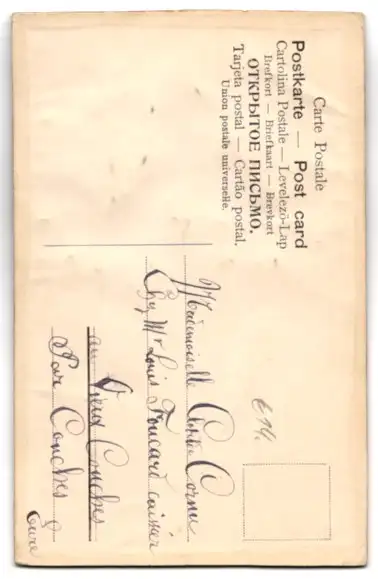 Carte Postale
Postkarte — Post card
Cartolina Postale — Levelező-Lap
Brefkort — Briefkaart — Brevkort
ОТКРЫТОЕ ПИСЬМО.
Tarjeta postal — Cartão postal.
Union postale universelle.
Mademoiselle Cornu
Chez Mr Louis Foucard
au Vieux Conches
Par Conches
Eure